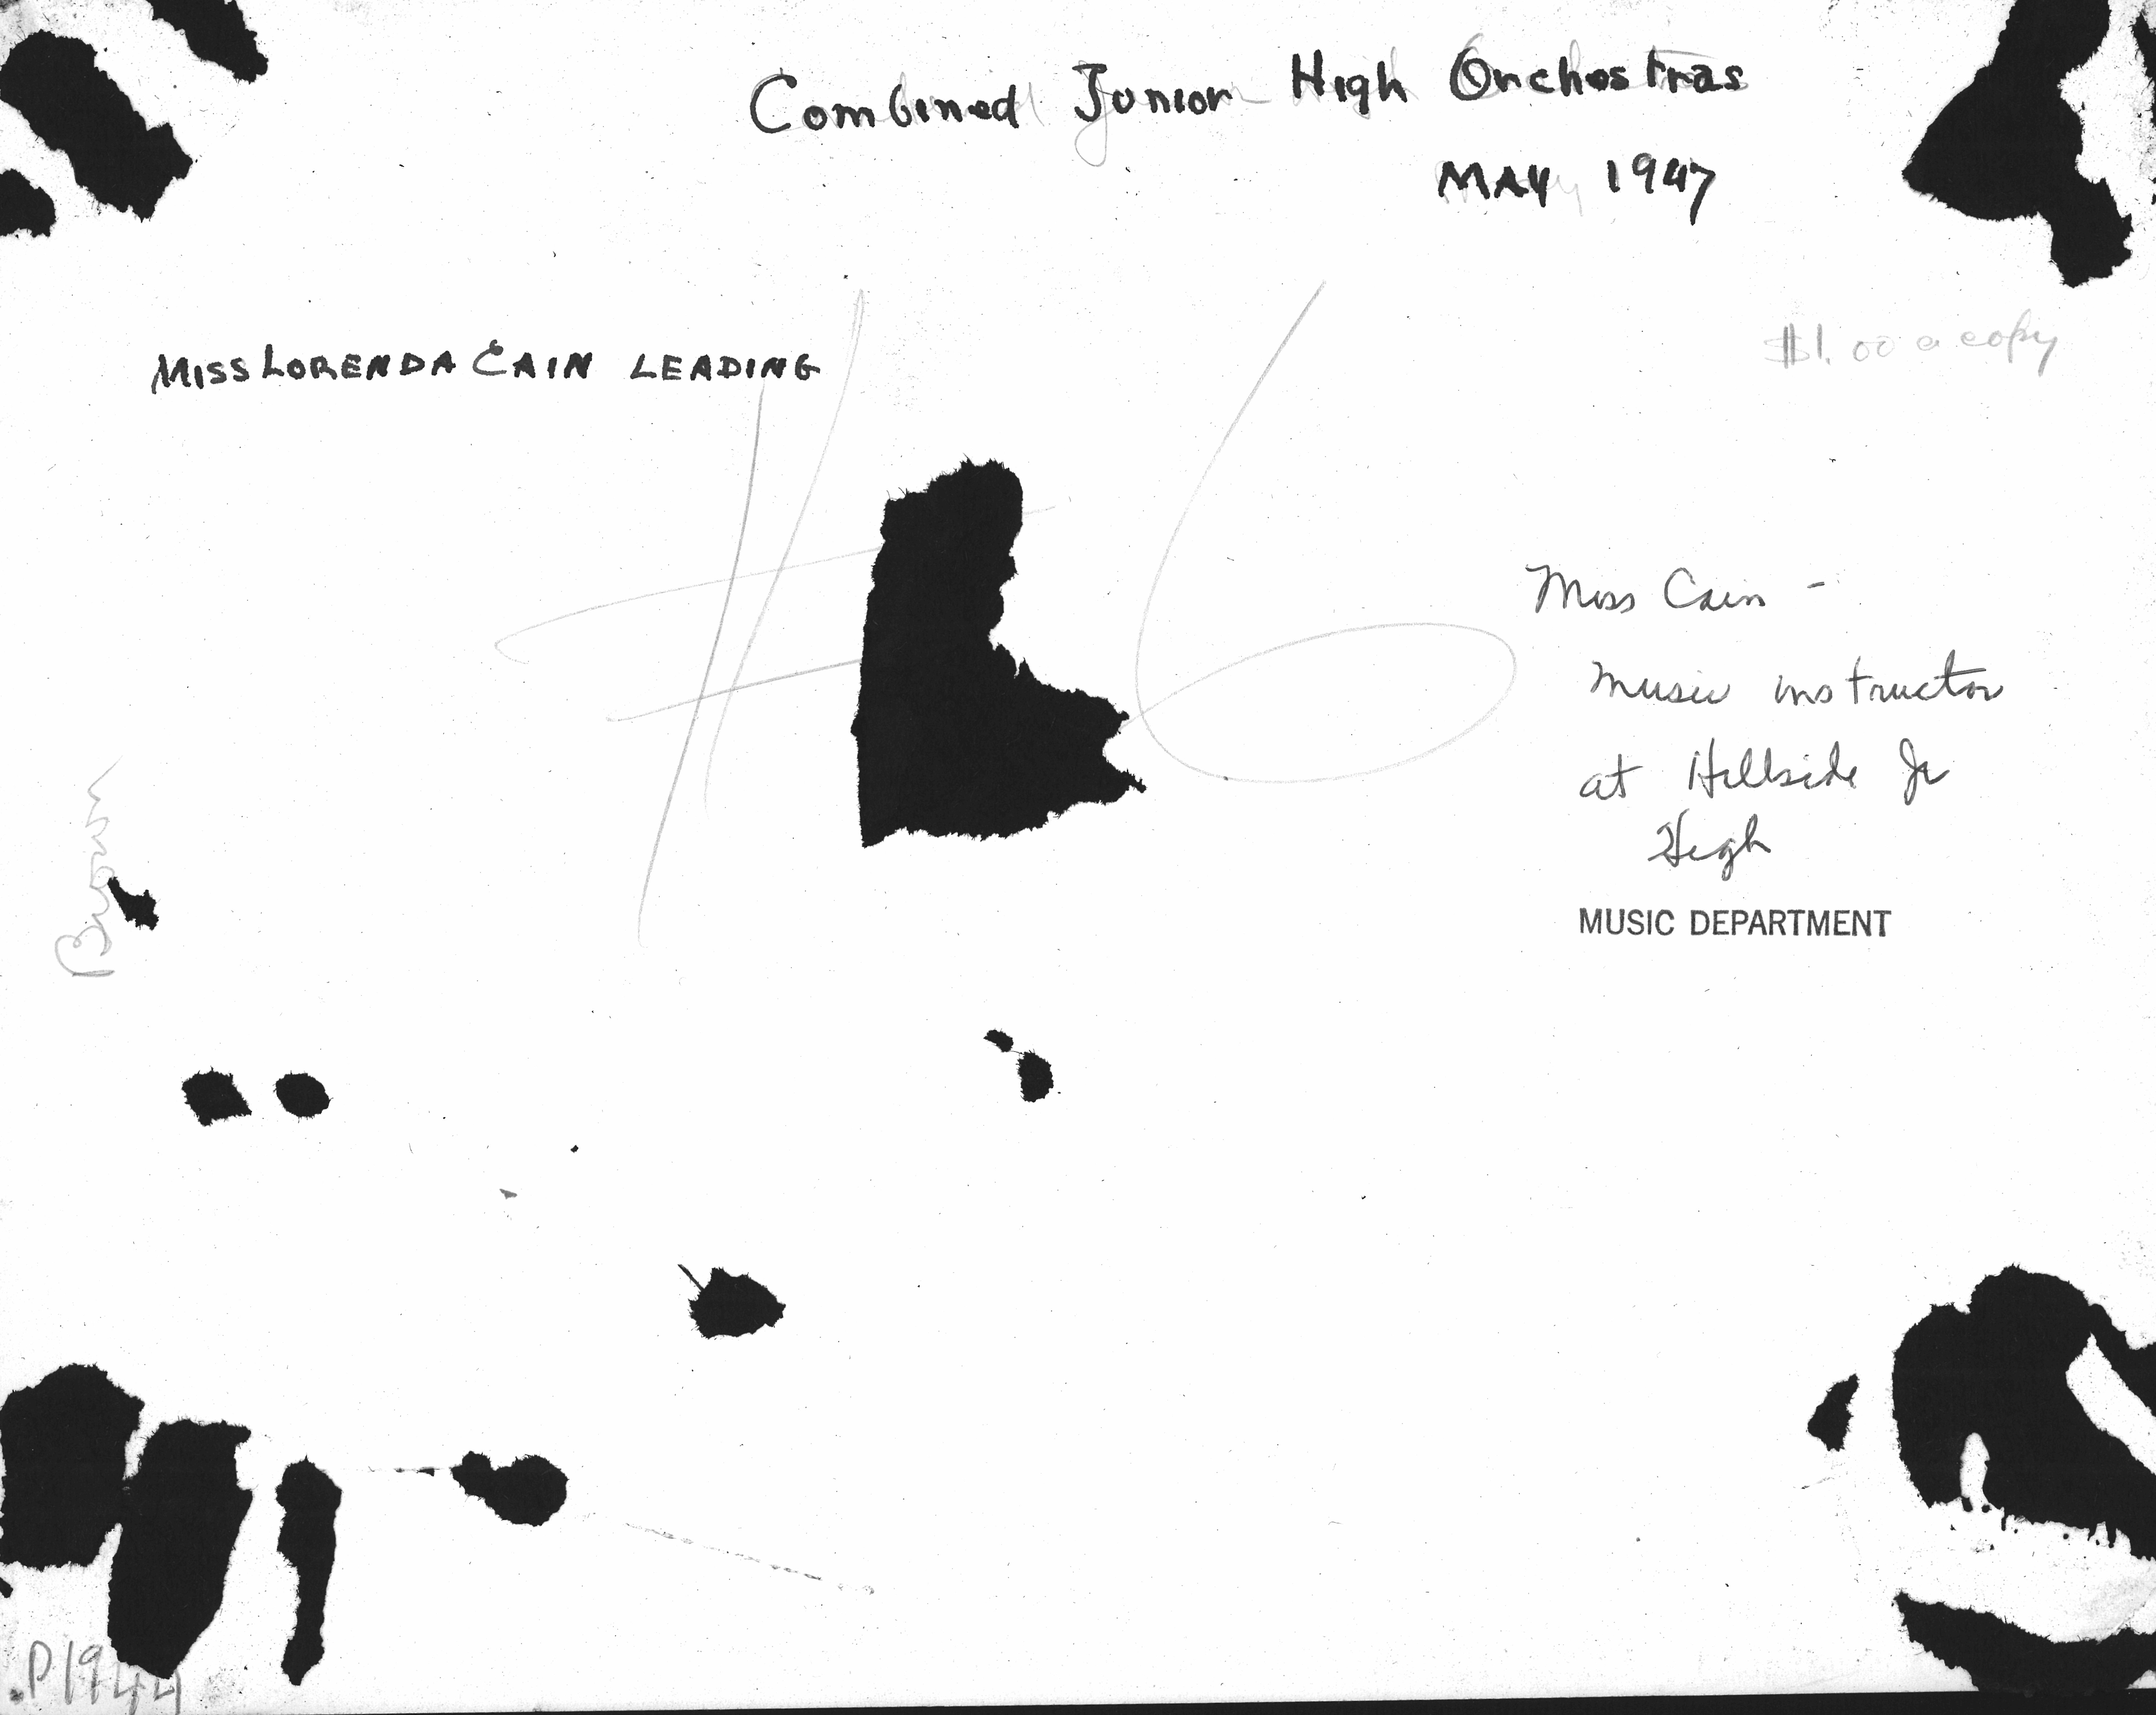 Combined Junior High Orchestras
MAY 1947
$1.00 a copy
MISS LORENDA CAIN LEADING
#6
Miss Cain -
music instructor
at Hillside Jr
High
MUSIC DEPARTMENT
Brown
P1944